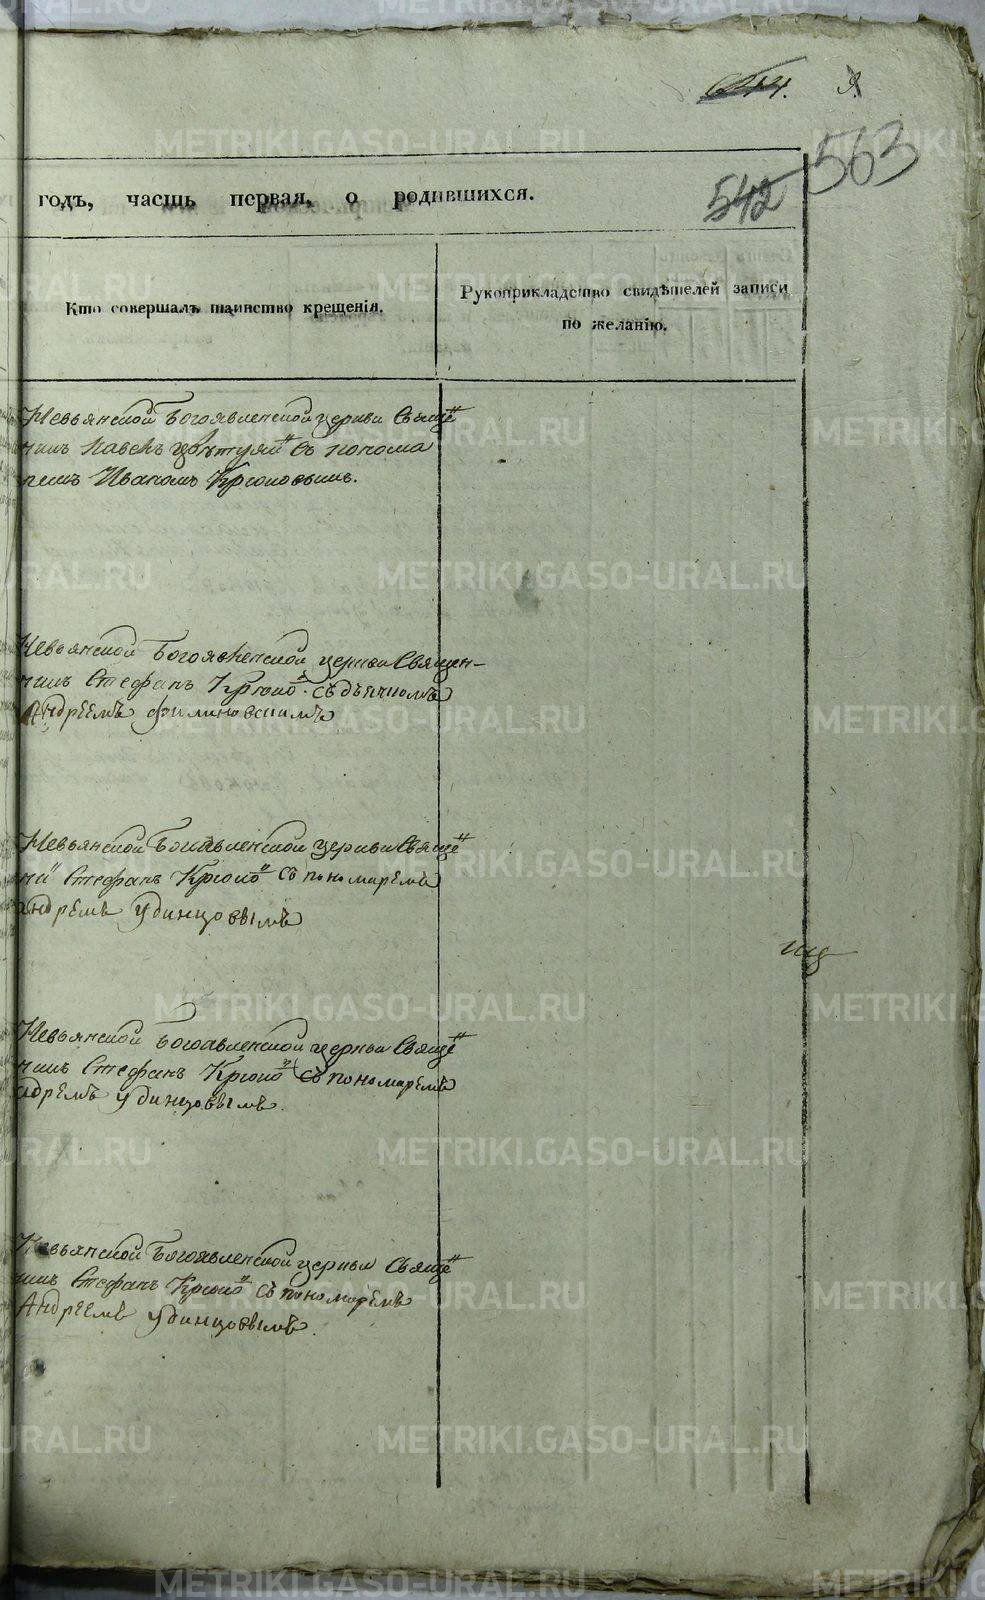 563
542
годъ, часть первая, о родившихся.
Кто совершалъ таинство крещенія.
Рукоприкладство свидѣтелей записи
по желанію.
Невьянской Богоявленской церкви Свяще
никъ Павелъ с понома
ремъ Иваномъ Крюковымъ.
Невьянской Богоявленской церкви Священ-
никъ Стефанъ Крюко съ дьячкомъ
Андреемъ Филиновскимъ
Невьянской Богоявленской церкви Свяще
ни Стефанъ Крюко съ пономаремъ
Андремъ Удинцовымъ
Невьянской Богоявленской церкви Свяще
никъ Стефанъ Крюко съ пономаремъ
адремъ Удинцовымъ.
Невьянской Богоявленской церкви Свяще
никъ Стефанъ Крюко съ пономаремъ
Андреемъ Удинцовымъ.
METRIKI.GASO-URAL.RU